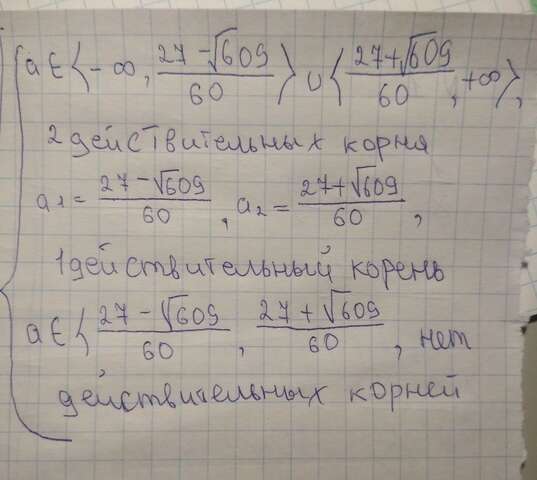 a ∈ ⟨-∞, (27 - √609)/60⟩ ∪ ⟨(27 + √609)/60, +∞⟩,
2 действительных корня
a₁ = (27 - √609)/60, a₂ = (27 + √609)/60,
1 действительный корень
a ∈ ⟨(27 - √609)/60, (27 + √609)/60, нет
действительных корней